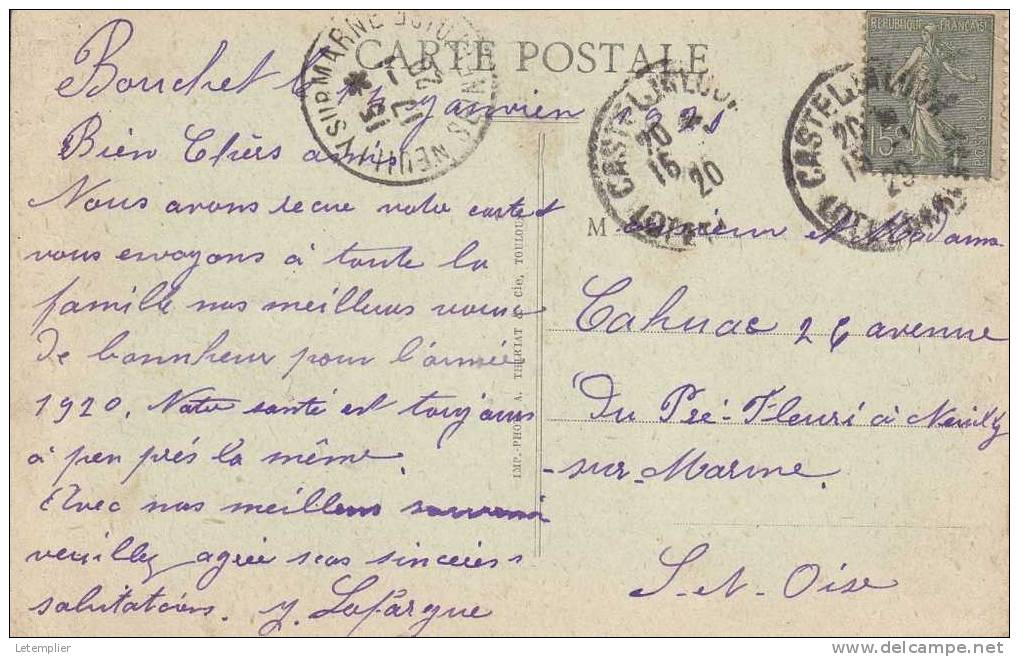 CARTE POSTALE
RÉPUBLIQUE FRANÇAISE
15c
POSTES
NEUILLY SUR MARNE SEINE ET OISE
15 *
17 -1
20
CASTELJALOUX
20 *
15 -1
20
LOT ET GAR.
CASTELJALOUX
20 *
15 -1
20
LOT ET GAR.
Bouchet le 14 janvier 1920
Bien Chers amis
Nous avons recue votre carte et
vous envoyons à toute la
famille nos meilleurs voeux
de bonnheur pour l'année
1920. Notre santé est toujours
à peu près la même.
Avec nos meilleurs souvenir
veuillez agrée nos sincères
salutations. Y. Lafargue
IMP.-PHOT. A. THIRIAT & Cie, TOULOUSE
Monsieur et Madame
Cahuac 26 avenue
Du Pré-Fleuri à Neuilly
-sur-Marne.
S.-et-Oise
Letemplier
delcampe.net